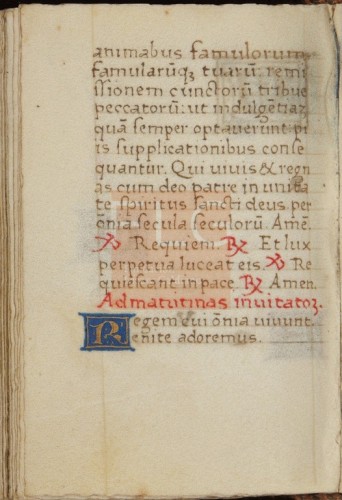 animabus famulorum
famularūqꝫ tuarū remi
ssionem cunctorū tribue
peccatorū: ut indulgētiaꝫ
quā semper optaverunt pi
is supplicationibus conse
quantur. Qui vivis & regn
as cum deo patre in unita
te spiritus sancti deus per
ōnia secula seculorū. Amē.
℣ Requiem. ℟ Et lux
perpetua luceat eis. ℣ Re
quiescant in pace. ℟ Amen.
Ad matutinas invitatoꝫ.
Regem cui ōnia vivunt.
Venite adoremus.